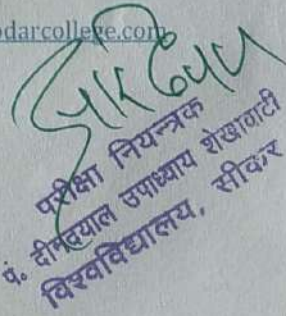 odarcollege.com
परीक्षा नियन्त्रक
पं. दीनदयाल उपाध्याय शेखावाटी
विश्वविद्यालय, सीकर